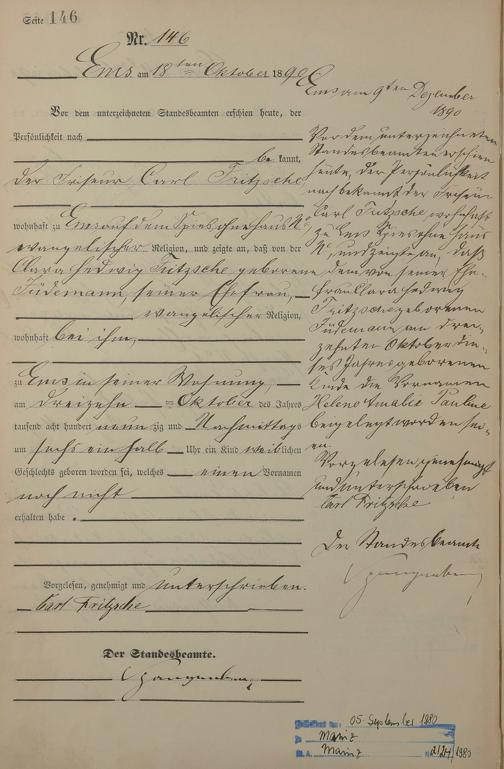 Seite 146
Nr. 146
Ems am 18ten Oktober 1890
Vor dem unterzeichneten Standesbeamten erschien heute, der
Persönlichkeit nach
be kannt,
der Friseur Carl Fritzsche
wohnhaft zu Ems auf dem Spies ohne Haus No
evangelischer Religion, und zeigte an, daß von der
Clara Hedwig Fritzsche geborene
Jüdemann seiner Ehefrau,
evangelischer Religion,
wohnhaft bei ihm,
zu Ems in seiner Wohnung,
am dreizehn ten Oktober des Jahres
tausend acht hundert neun zig und Nachmittags
um sechs ein halb Uhr ein Kind weiblichen
Geschlechts geboren worden sei, welches einen Vornamen
noch nicht
erhalten habe.
Vorgelesen, genehmigt und unterschrieben.
Carl Fritzsche
Der Standesbeamte.
Ems am 9ten Dezember
1890
Vor dem unterzeichneten
Standesbeamten erschien
heute, der Persönlichkeit
nach bekannt der Friseur
Carl Fritzsche wohnhaft
zu Ems Spies ohne Haus
No, und zeigte an, daß
dem von seiner Ehe-
frau Clara Hedwig
Fritzsche geborenen
Jüdemann am drei-
zehnten Oktober die-
ses Jahres geborenen
Kinde die Vornamen
Helene Amalie Pauline
beigelegt worden sei-
en.
Vorgelesen, genehmigt
und unterschrieben
Carl Fritzsche
Der Standesbeamte
05. September 1980
Mainz
Mainz
1980